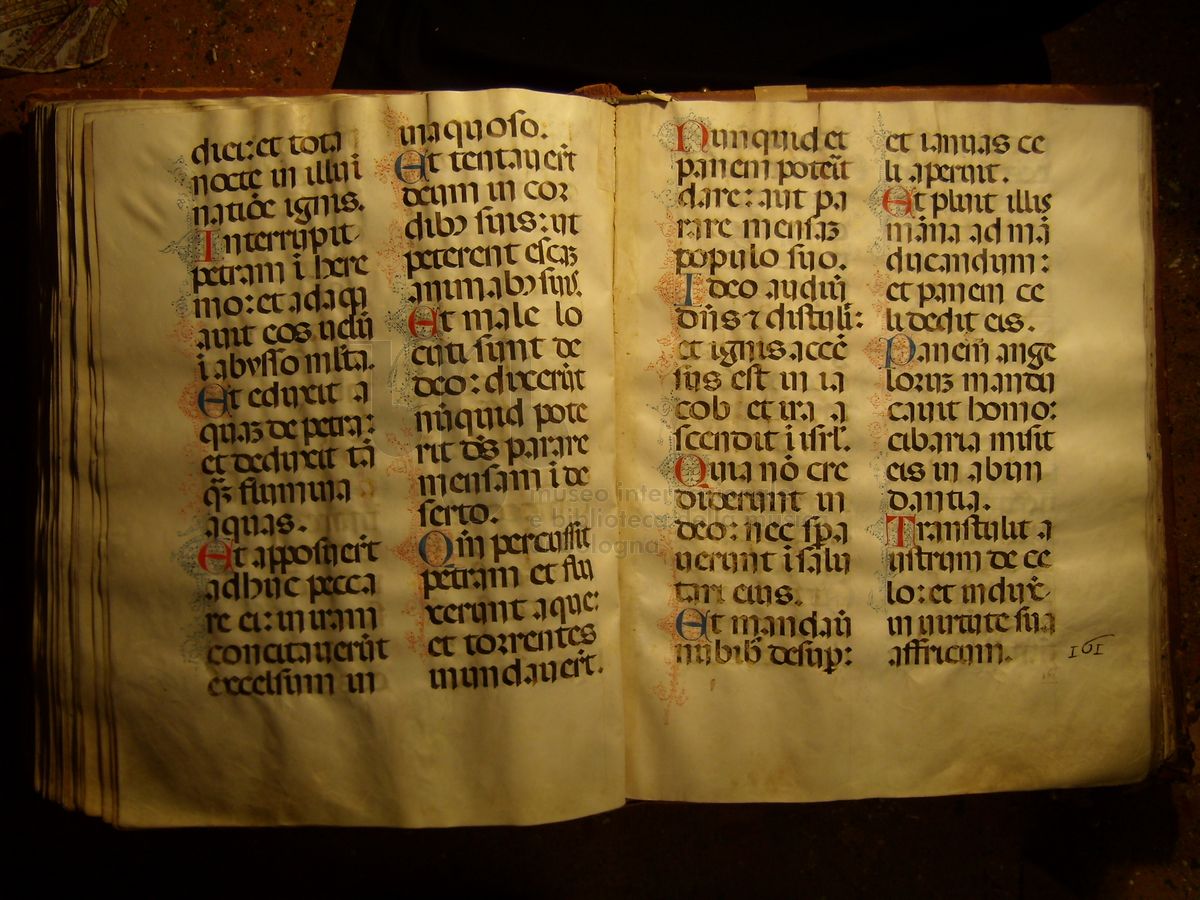 diei: et tota
nocte in illuı̄
natiōe ignis.
Interrupit
petram ī here
mo: et adaq̄
auit eos uelū
ī abysso mĺta.
Et eduxit a
quaȝ de petra:
et deduxit tā
q̄ȝ flumina
aquas.
Et apposuer̄t
adhuc pecca
re ei: in iram
concitauer̄ūt
excelsum in
inaquoso.
Et tentauer̄t
deum in cor
dibꝰ suis: ut
peterent escaȝ
animabꝰ suis.
Et male lo
cuti sunt de
deo: dixer̄ūt
nūquid pote
rit dn̄s parare
mensam ī de
serto.
Qm̄ percussit
petram et flu
xerunt aque:
et torrentes
inundauer̄t.
Nunquid et
panem poteıt̄
dare: aut pa
rare mensaȝ
populo suo.
Ideo audiuı̄
dn̄s ⁊ distulı̄:
et ignis accē
sus est in ia
cob et ira a
scendit ī isrl̄.
Quia nō cre
diderunt in
deo: nec spa
uerunt ī salu
tari eius.
Et mandauı̄
nubibꝰ desuꝑ:
et ianuas ce
li aperuit.
Et pluit illis
māna ad mā
ducandum:
et panem ce
li dedit eis.
Panem ange
loruȝ mandu
cauit homo:
cibaria misit
eis in abun
dantia.
Transtulit a
ustrum de ce
lo: et induxı̄
in uirtute sua
affricum.
161
museo inter
e biblioteca
ologna